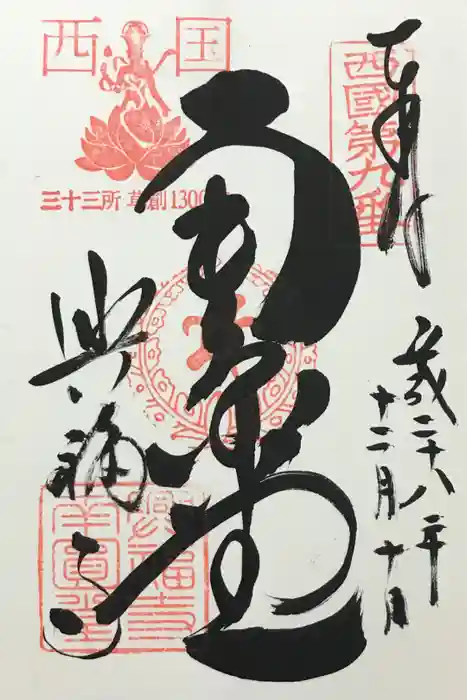 奉拝
西國第九番
平成二十八年
十二月十日
南圓堂
西国
三十三所 草創1300
興福寺
興福寺
南圓堂